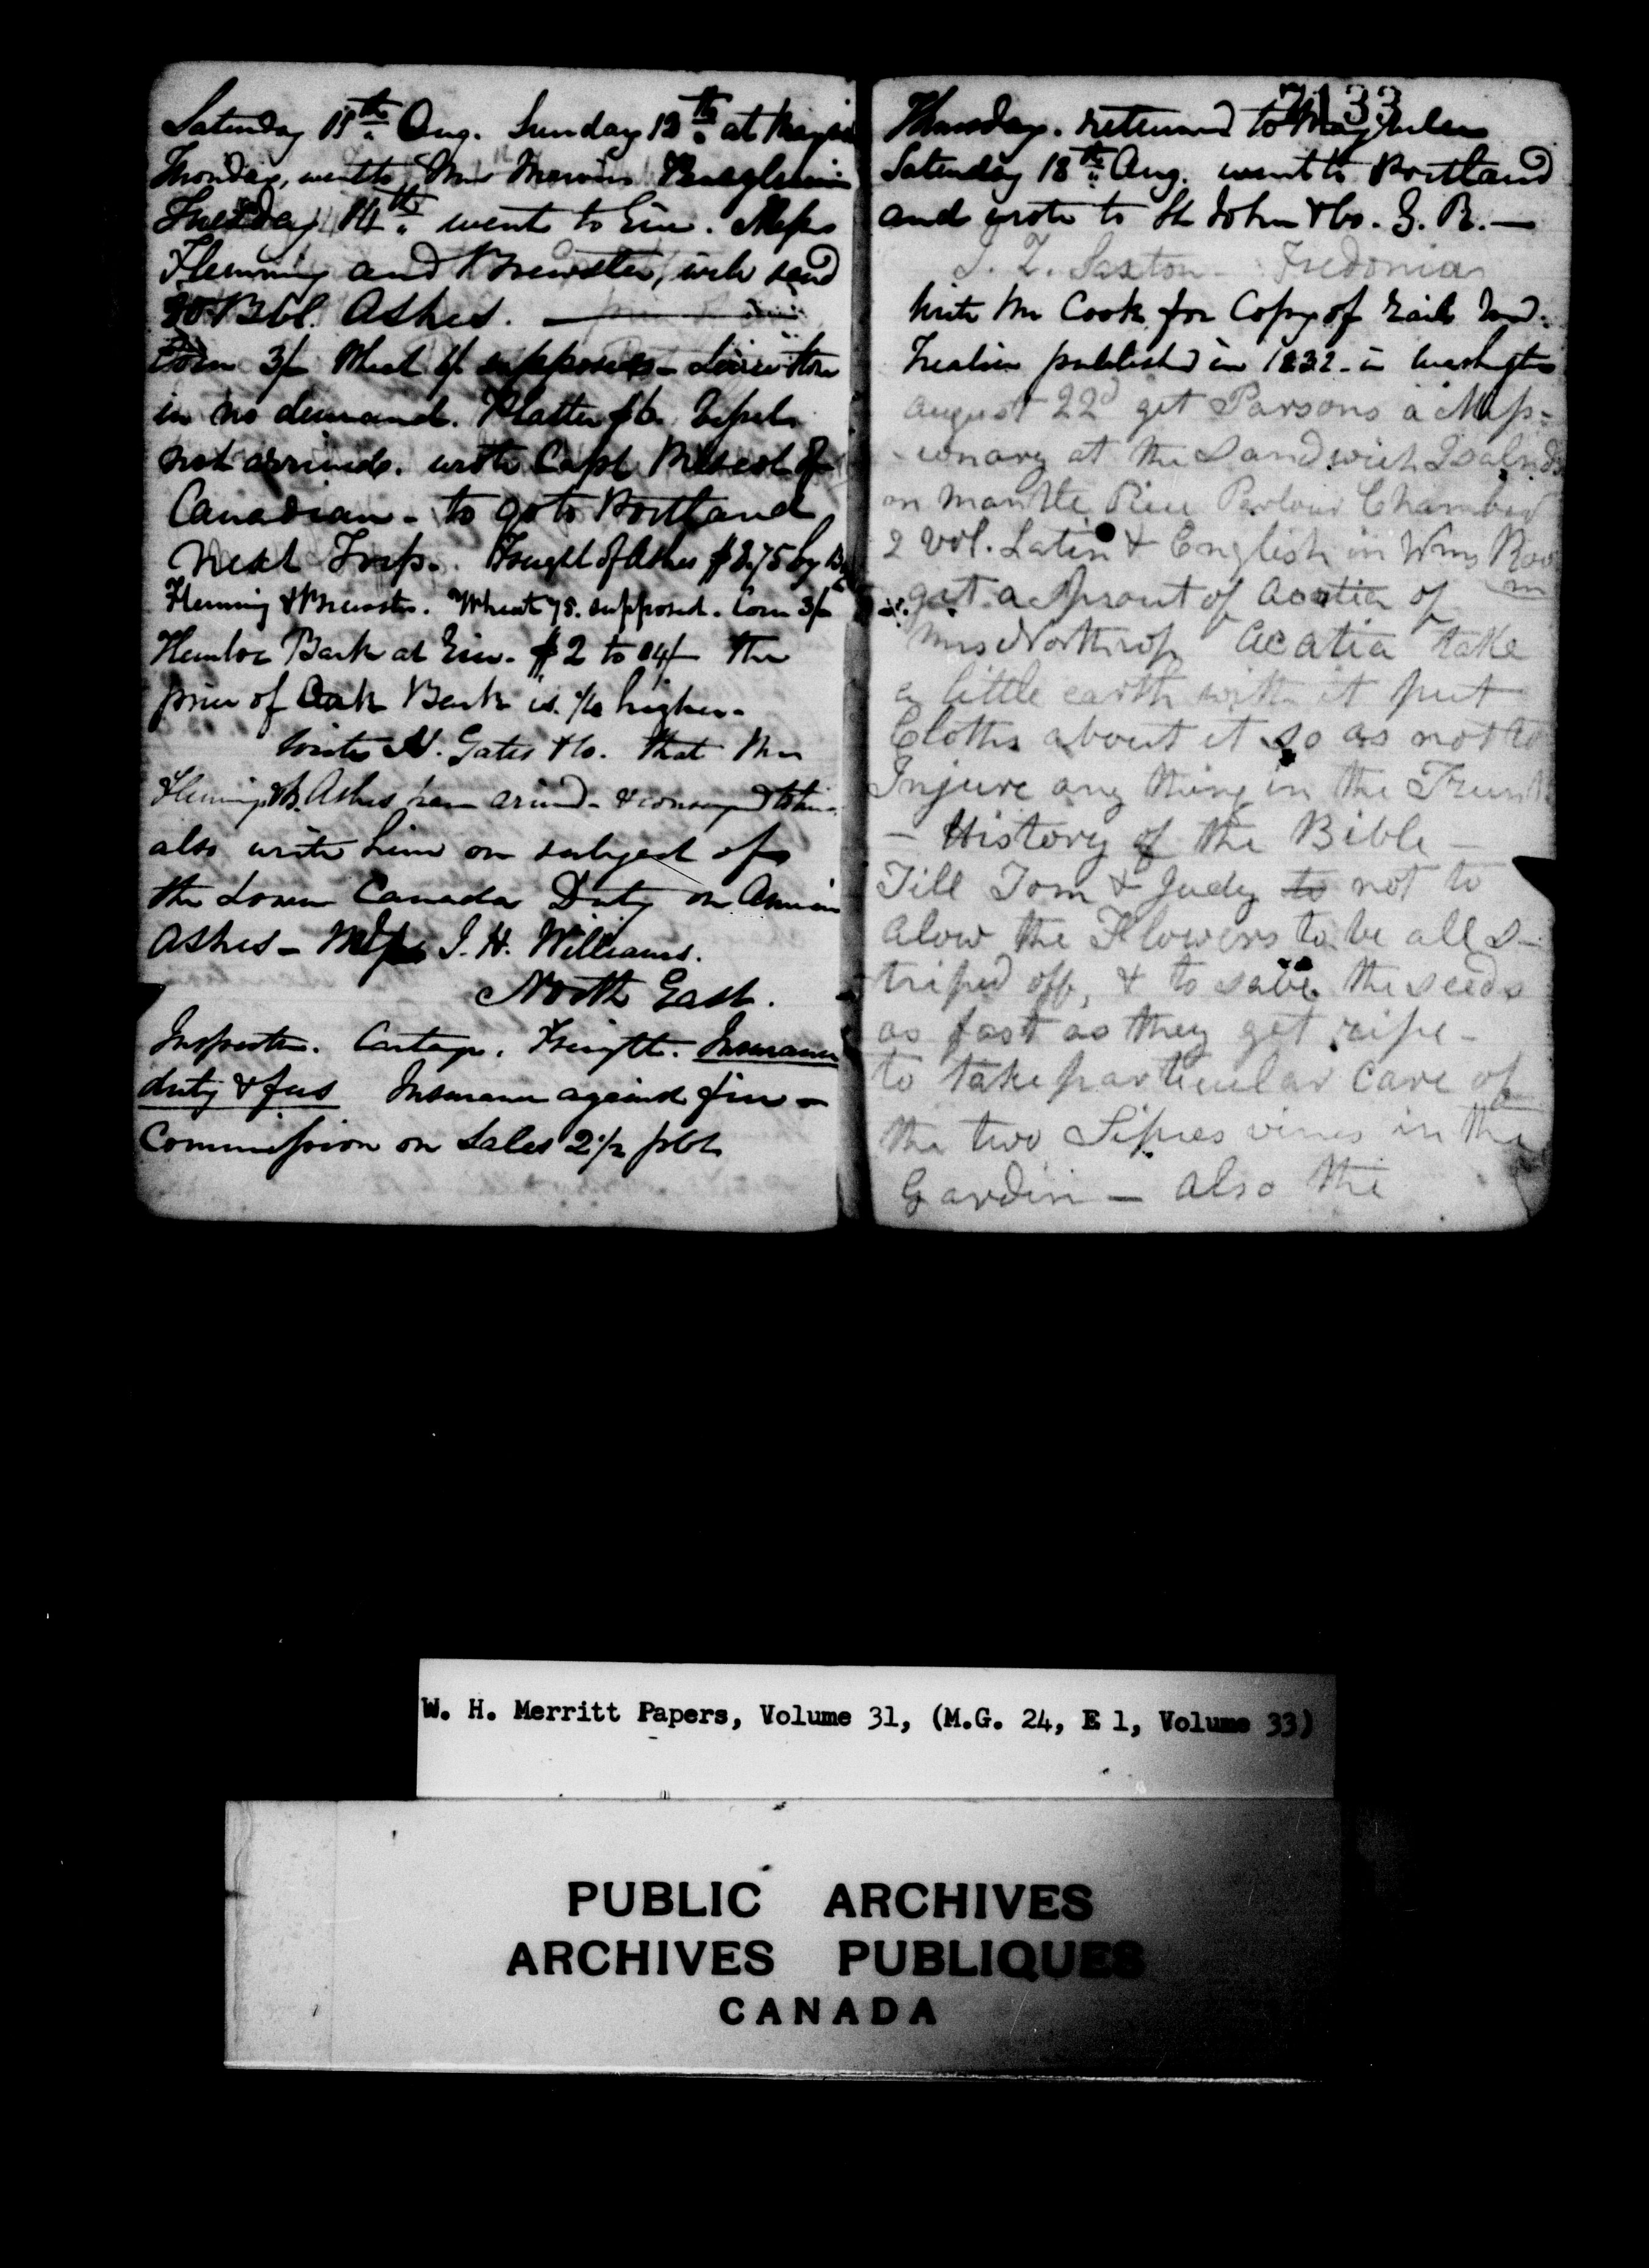 Saturday 11th Aug. Sunday 12th at
Monday, went to Pensylvania
Tuesday 14th went to Erie. Messrs
Flemming and Brewster, will send
Bbl. Ashes.
Corn 3/- supposes
in no demand.
not arrived. write Capt of
Canadian - to go to Portland
next Trip. of Ashes $3.75 by
Fleming & Brewster. Wheat 75. supposed. Corn 3/-
Hemloc Bark at Erie. $2 to the
price of Oak Bark is higher.
write N. Gates & Co. that the
Fleming & B. Ashes have arived - &
also write him on subject of
the Lower Canada Duty on
Ashes - Messrs J. H. Williams.
North East.
Inspection. Cartage. Freight. Insurance
duty & fees Insurance against fire -
Commission on Sales 2 1/2 pct
7133
Thursday. returned to
Saturday 18th Aug. went to Portland
and wrote to St John & Co. G. R. -
Saxton - Fredonia
write Mr Cook for Copy of Rail Road
Treatise published in 1832 - in Washington
August 22d get Parsons a Miss-
-ionary at the Sandwich Isalnds
on Mantle Piece Parlour Chamber
2 vol. Latin & English in Wms Room
get a Sprout of of
Mrs Northrop Acatia take
a little earth with it put
Cloths about it so as not to
Injure any thing in the Trunk
- History of the Bible -
Till Tom & Judy to not to
alow the Flowers to be all s-
triped off, & to save the seeds
as fast as they get ripe -
to take particular care of
the two Sipres vines in the
Gardin - also the
W. H. Merritt Papers, Volume 31, (M.G. 24, E 1, Volume 33)
PUBLIC ARCHIVES
ARCHIVES PUBLIQUES
CANADA